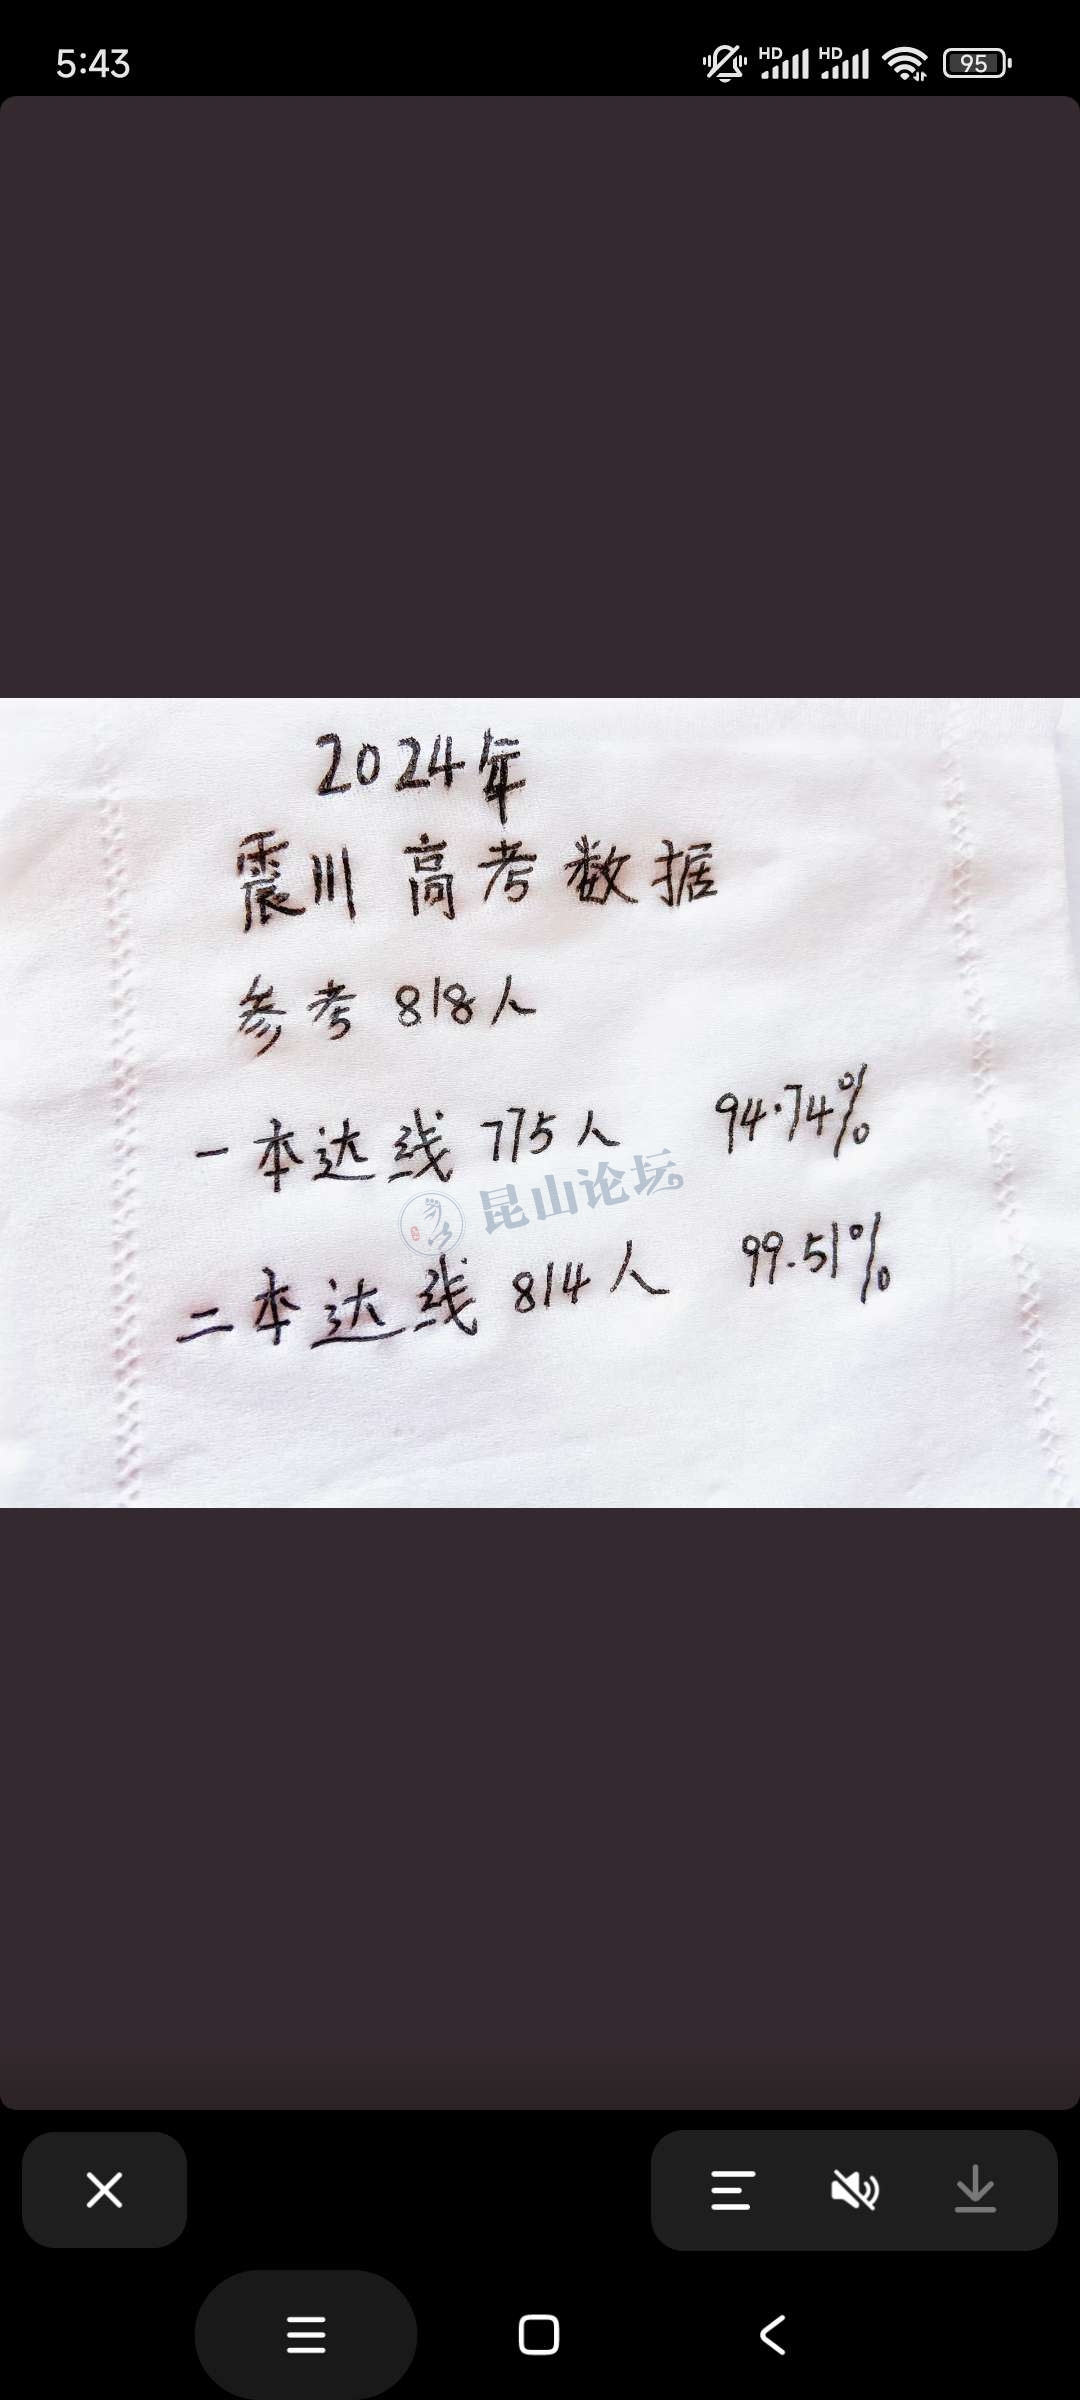 5:43
HD HD 95
2024年
震川 高考数据
参考 818人
一本达线 775人 94.74%
昆山论坛
二本达线 814人 99.51%